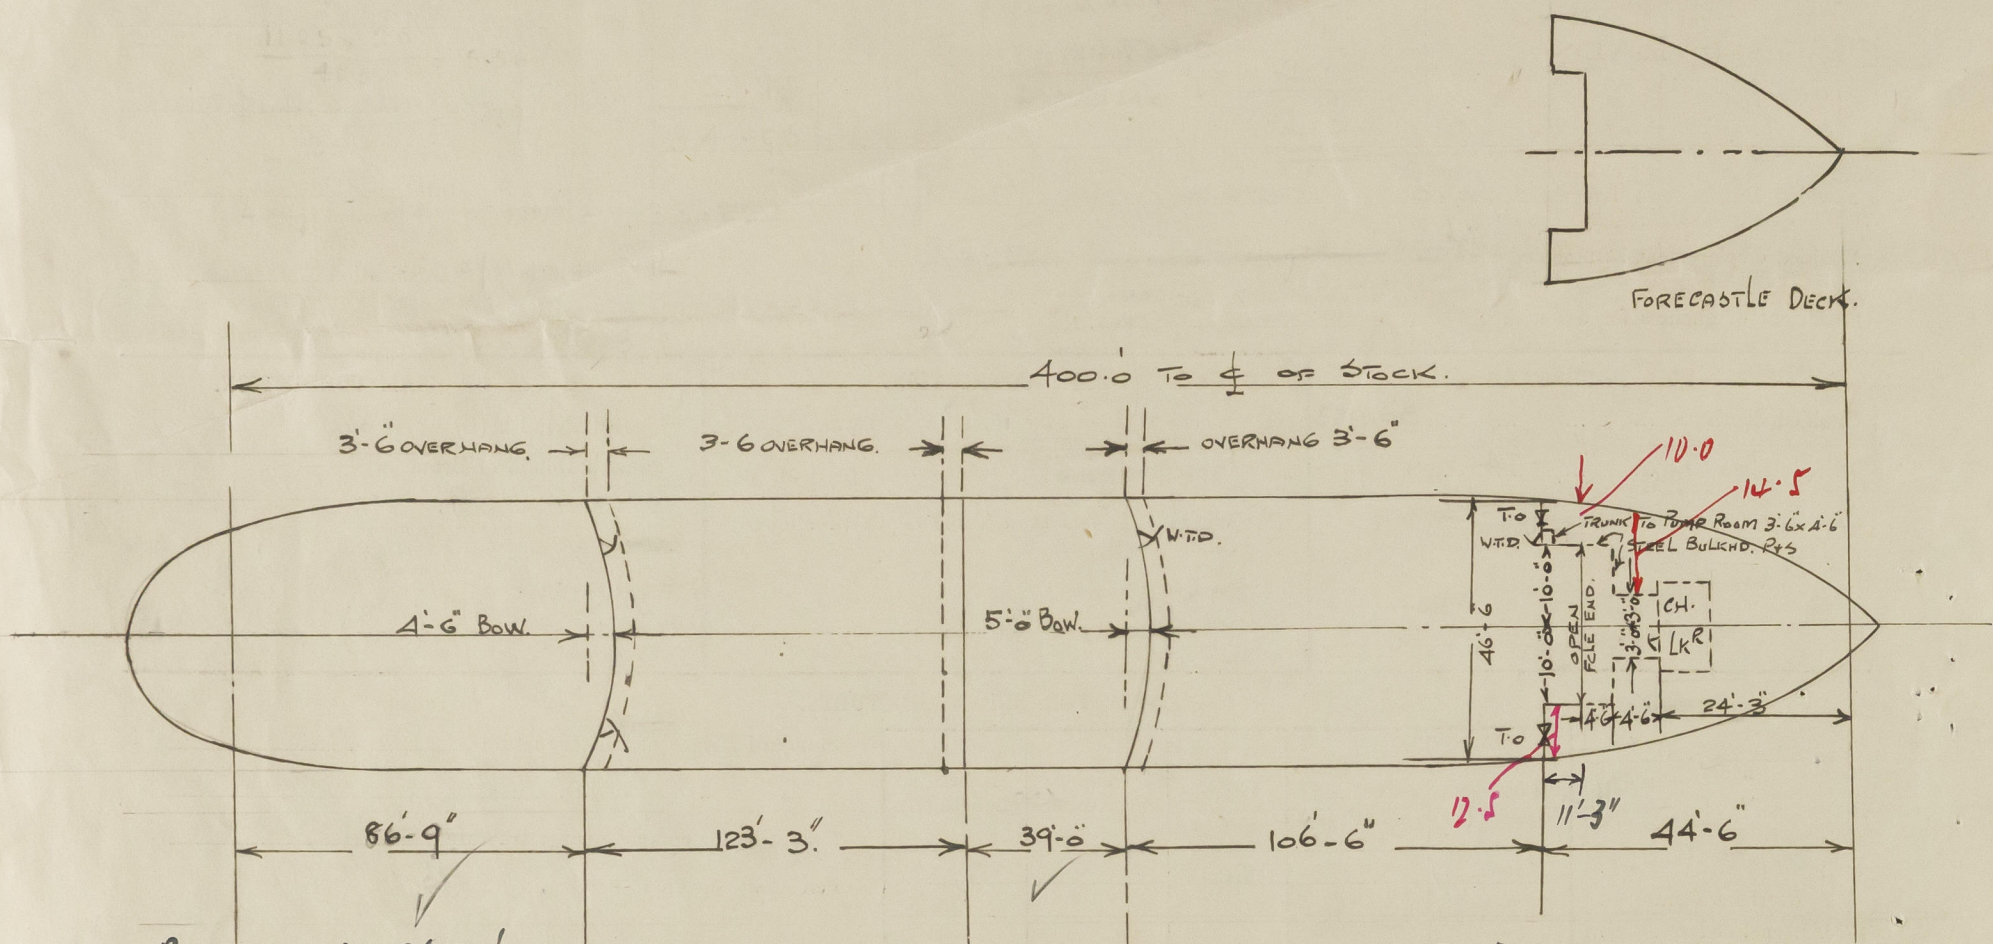 FORECASTLE DECK.
400.0' TO ℄ OF STOCK.
3'-6" OVERHANG.
3-6 OVERHANG.
OVERHANG 3'-6"
10.0
14.5
T.O
TRUNK TO PUMP ROOM 3'-6" x 4'-6"
W.T.D.
W.T.D.
STEEL BULKHD. P+S
4'-6" BOW.
5'-0" BOW.
46'-6
10'-0"
10'-0"
OPEN
FCLE END.
3'-0"
3'-0"
CH.
LKR
4'-6"
4'-6"
24'-3"
T.O
12.5
11'-3"
86'-9"
123'-3."
39'-0"
106'-6"
44'-6"